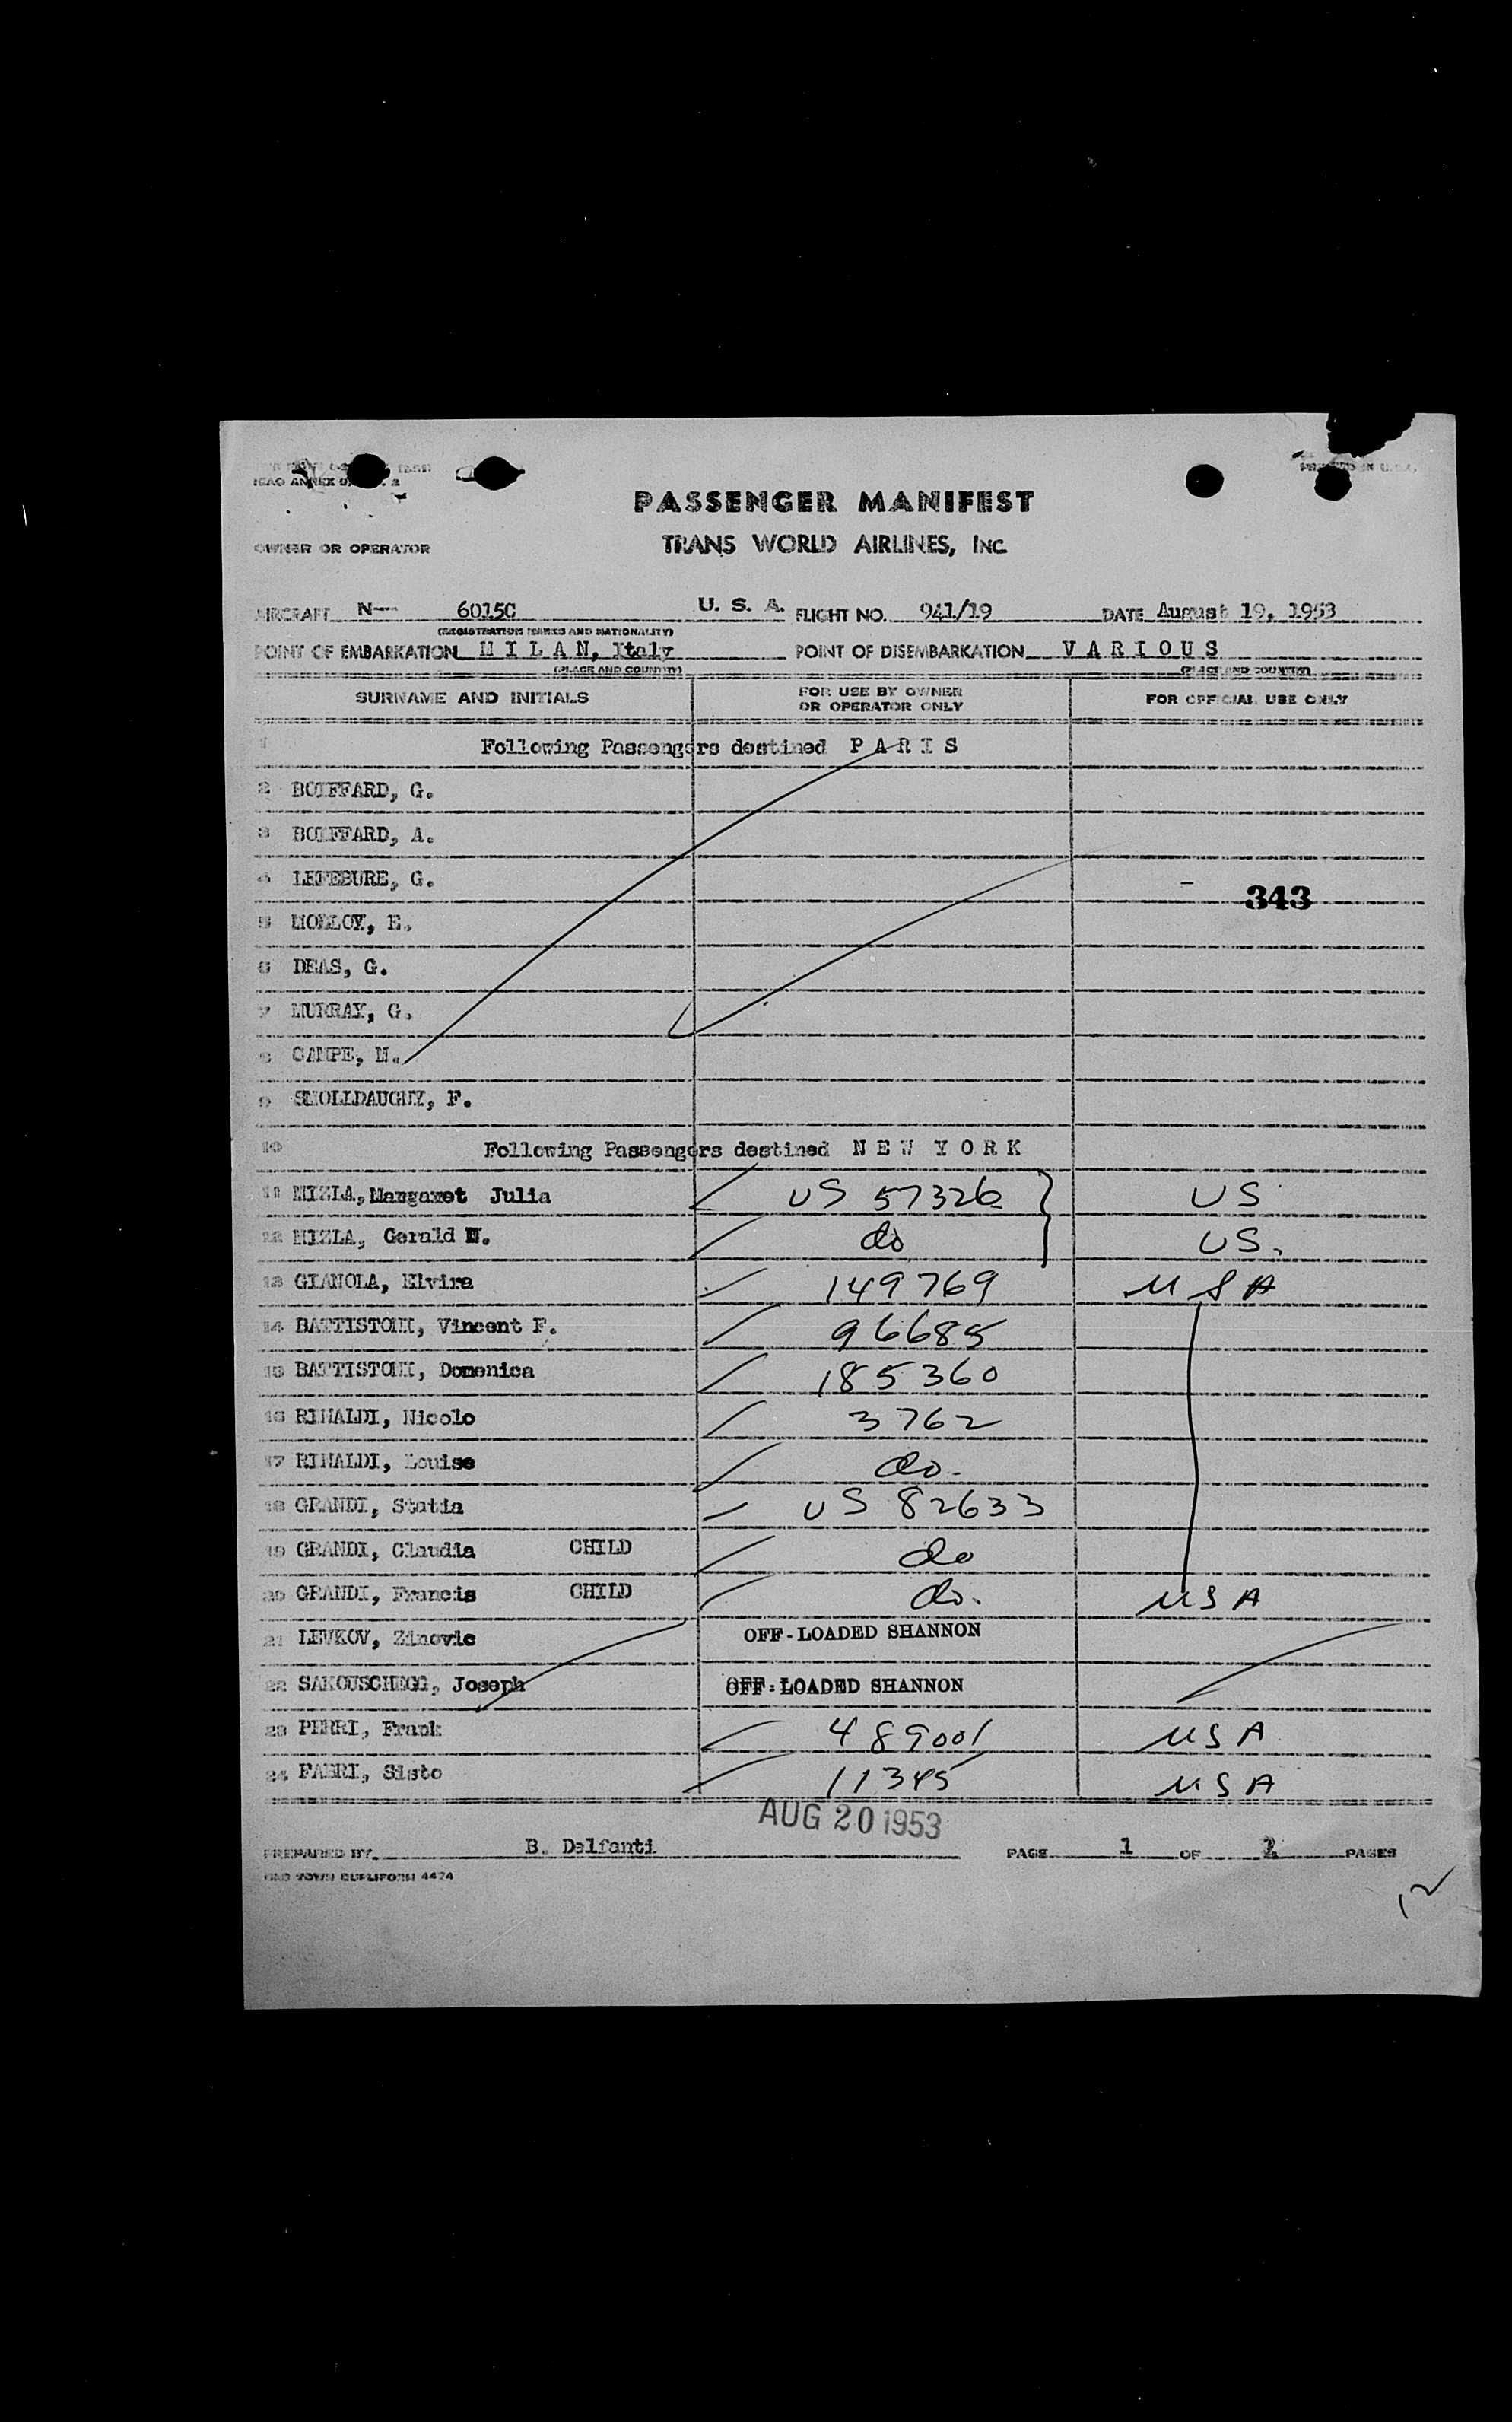 ICAO ANNEX
PASSENGER MANIFEST
OWNER OR OPERATOR TRANS WORLD AIRLINES, INC.
AIRCRAFT N— 6015C U. S. A. FLIGHT NO. 941/19 DATE August 19, 1953
(REGISTRATION MARKS AND NATIONALITY)
POINT OF EMBARKATION M I L A N, Italy POINT OF DISEMBARKATION V A R I O U S
(PLACE AND COUNTRY) (PLACE AND COUNTRY)
SURNAME AND INITIALS FOR USE BY OWNER OR OPERATOR ONLY FOR OFFICIAL USE ONLY
1 Following Passengers destined P A R I S
2 BOIFFARD, G.
3 BOIFFARD, A.
4 LEFEBURE, G.
343
5 MOLLOY, E.
6 DEAS, G.
7 MURRAY, G.
8 CAMPE, M.
9 F.
10 Following Passengers destined N E W Y O R K
11 MIZLA, Margaret Julia US 57326 US
12 MIZLA, Gerald M. do US.
13 GIANOLA, Elvira 149769 USA
14 BATTISTONI, Vincent F. 96685
15 BATTISTONI, Domenica 185360
16 RINALDI, Nicolo 3762
17 RINALDI, Louise do.
18 GRANDI, Statia US 82633
19 GRANDI, Claudia CHILD do
20 GRANDI, Francis CHILD do. USA
21 LEVKOV, Zinovie OFF-LOADED SHANNON
22 SAKOUSCHEGG, Joseph OFF-LOADED SHANNON
23 PERRI, Frank 489001 USA
24 FABRI, Sisto 11345 USA
AUG 20 1953
PREPARED BY B. Delfanti PAGE 1 OF 2 PAGES
12